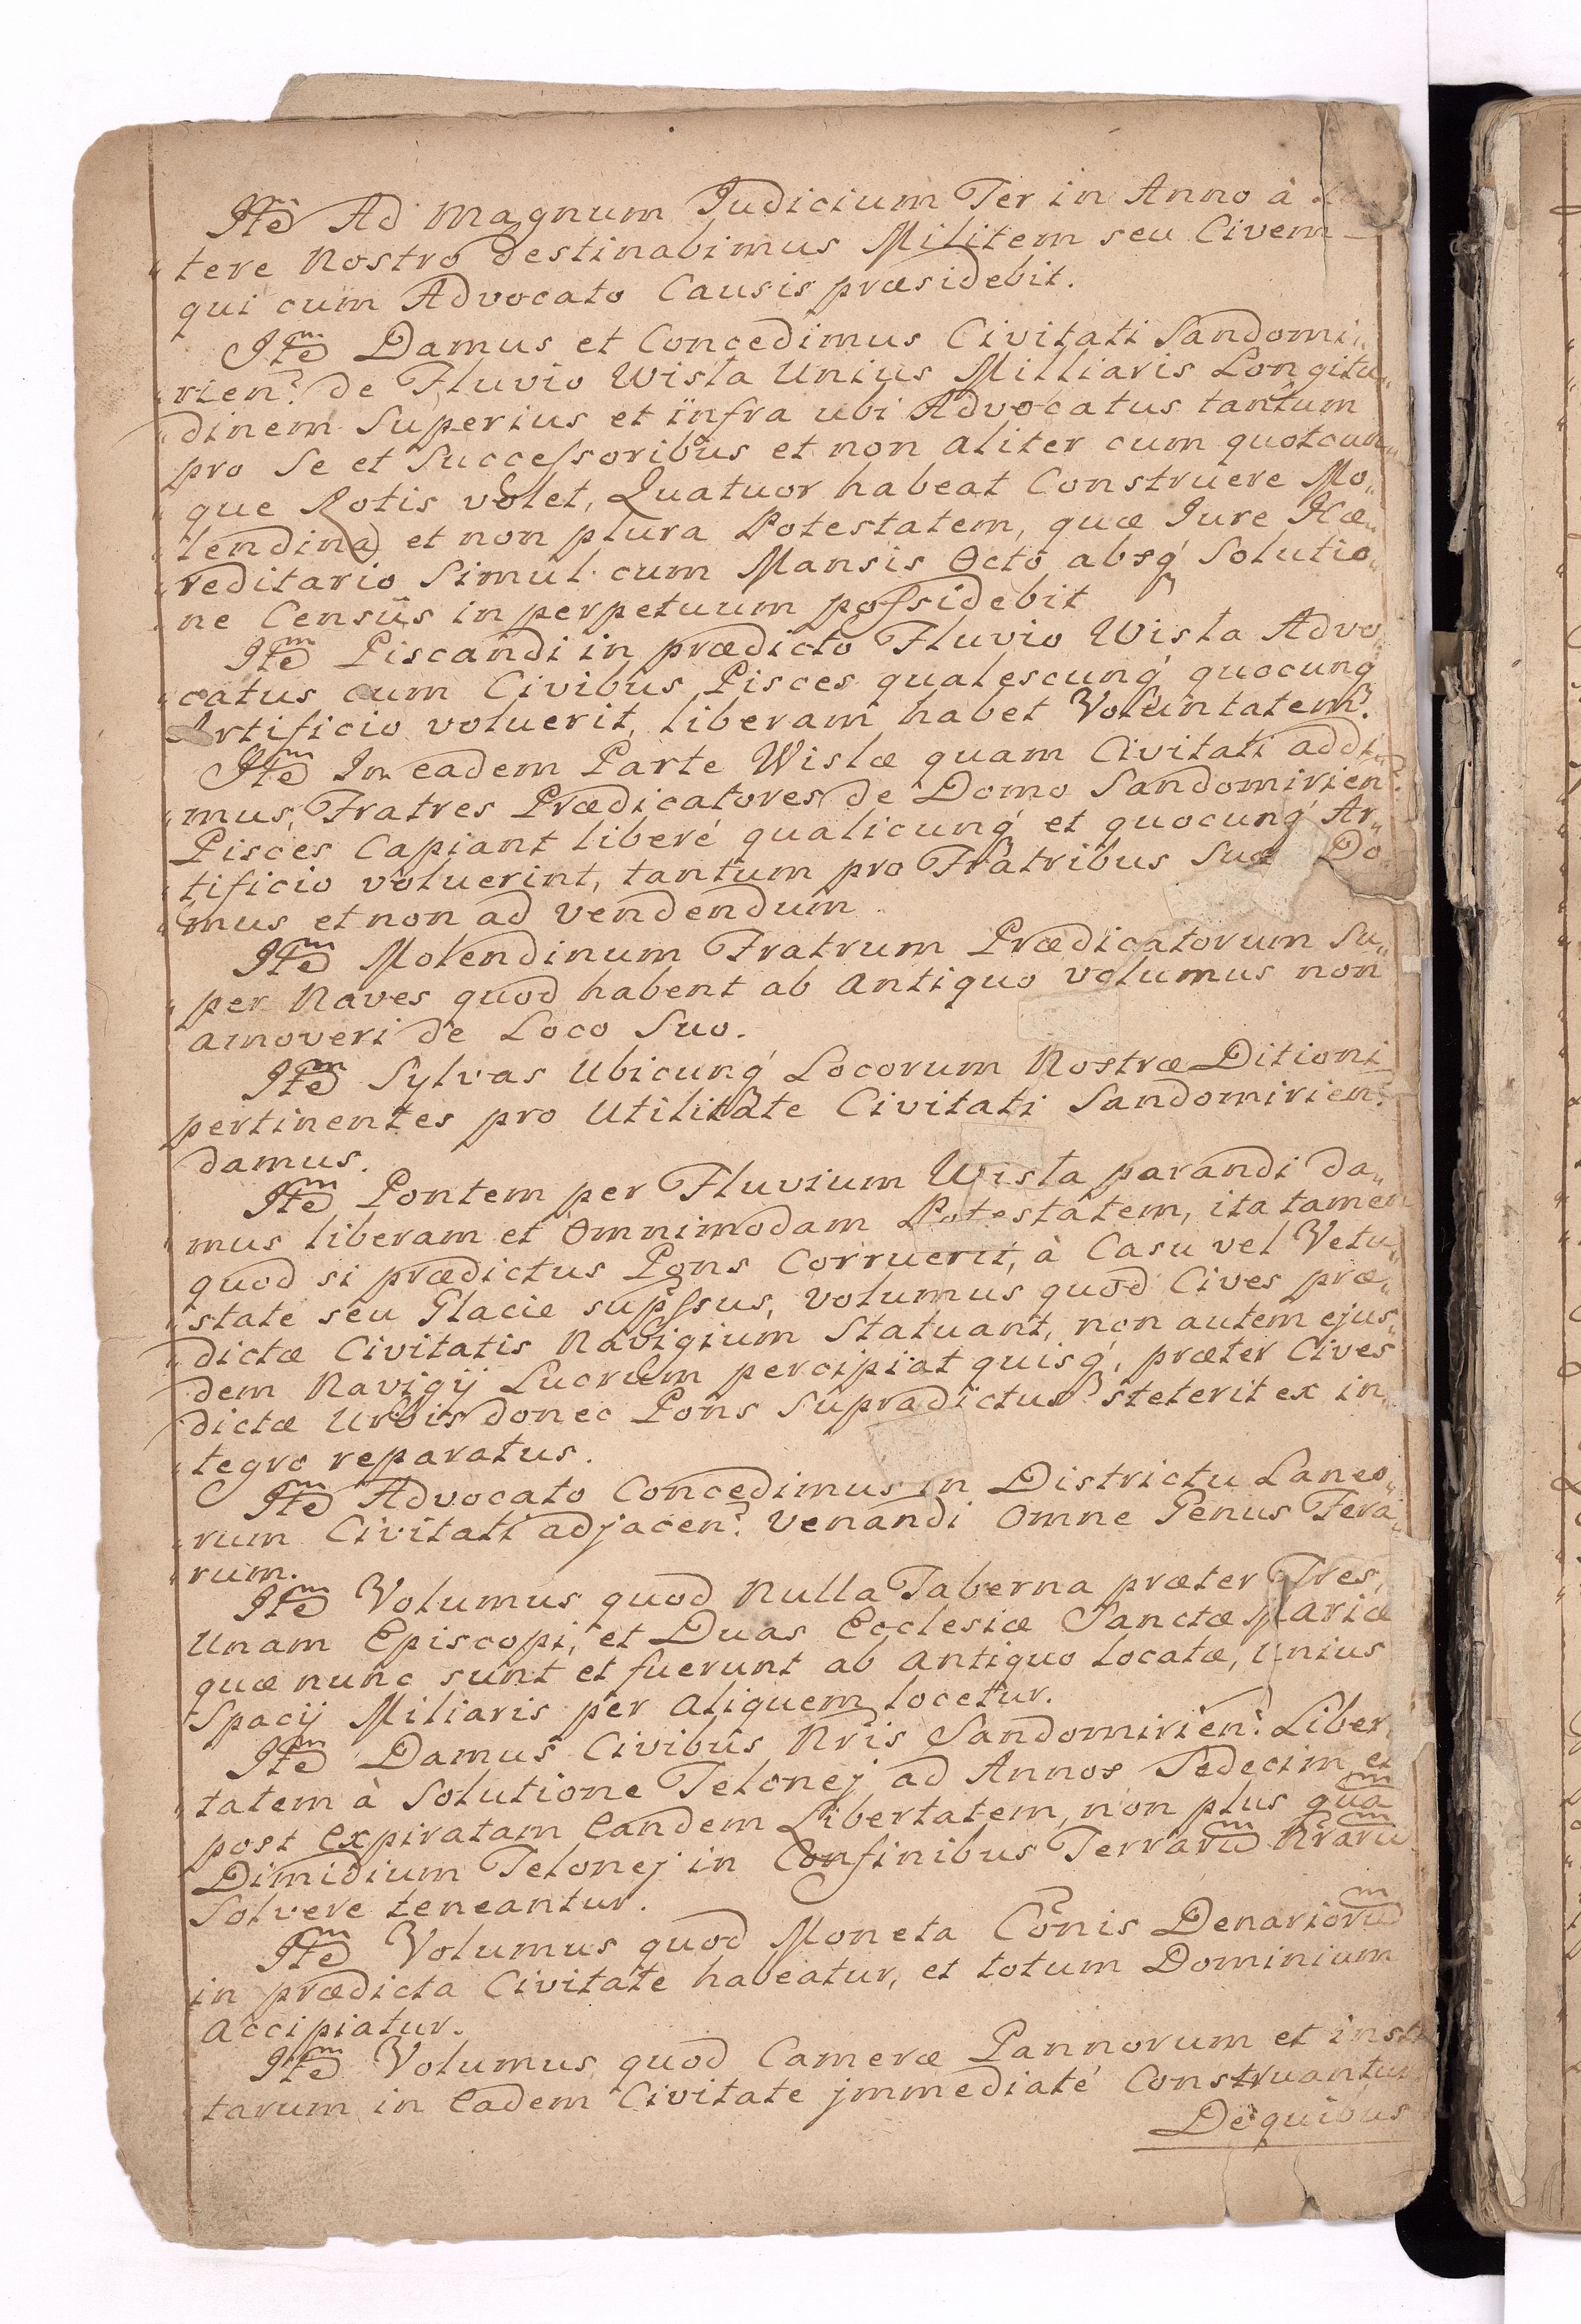 Itẽ Ad Magnum Judicium Ter in Anno à
tere Nostro destinabimus Militem seu Civem
qui cum Advocato Causis præsidebit.
Itẽ Damus et Concedimus Civitati Sandomi„
rien: de Fluvio Wisla Unius Milliaris Longitu„
dinem Superius et infra ubi Advocatus tantum
pro Se et Successoribus et non aliter cum quotcun„
que Rotis volet, Quatuor habeat Construere Mo„
lendina et non plura Potestatem, quæ Jure Hæ„
reditario Simul cum Mansis Octo absq́ Solutio„
ne Censûs in perpetuum possidebit
Itẽ Piscandi in prædicto Fluvio Wisla Advo„
catus cum Civibus Pisces qualescunq́ quocunq́
Artificio voluerit, liberam habet Voluntatem.
Itẽ In eadem Parte Wislæ quam Civitati addi„
mus, Fratres Prædicatores de Domo Sandomirien:
Pisces Capiant liberé qualicunq́ et quocunq́ Ar„
tificio voluerint, tantum pro Fratribus Suæ Do„
mus et non ad vendendum
Itẽ Molendinum Fratrum Prædicatorum Su„
per Naves quod habent ab Antiquo volumus non
amoveri de Loco Suo.
Itẽ Sylvas Ubicunq́ Locorum Nostræ Ditioni
pertinentes pro Utilitate Civitati Sandomirien:
damus.
Itẽ Pontem per Fluvium Wisla parandi da„
mus liberam et Omnimodam Potestatem, ita tamen
quod si prædictus Pons Corruerit, à Casu vel Vetu„
state seu Glacie supp̃ssus, volumus quod Cives præ„
dictæ Civitatis Navigium Statuant, non autem ejus„
dem Navigij Lucrum percipiat quisq́, præter Cives
dictæ Urbis donec Pons Supradictus steterit ex in„
tegro reparatus.
Itẽ Advocato Concedimus in Districtu Laneo„
rum Civitati adjacen: venandi Omne Genus Fera„
rum.
Itẽ Volumus quod Nulla Taberna præter Tres,
Unam Episcopi, et Duas Ecclesiæ Sanctæ Mariæ
quæ nunc sunt et fuerunt ab Antiquo locatæ, Unius
Spacij Miliaris per Aliquem locetur.
Itẽ Damus Civibus Nr̃is Sandomirien: Liber„
tatem à Solutione Telonej ad Annos Sedecim et
post Expiratam Eandem Libertatem, non plus quã
Dimidium Telonej in Confinibus Terrarũ Nr̃arũ
Solvere teneantur.
Itẽ Volumus quod Moneta Cõnis Denariorũ
in prædicta Civitate habeatur, et totum Dominium
Accipiatur.
Itẽ Volumus, quod Cameræ Pannorum et insti
tarum in Eadem Civitate jmmediaté Construantur
De quibus